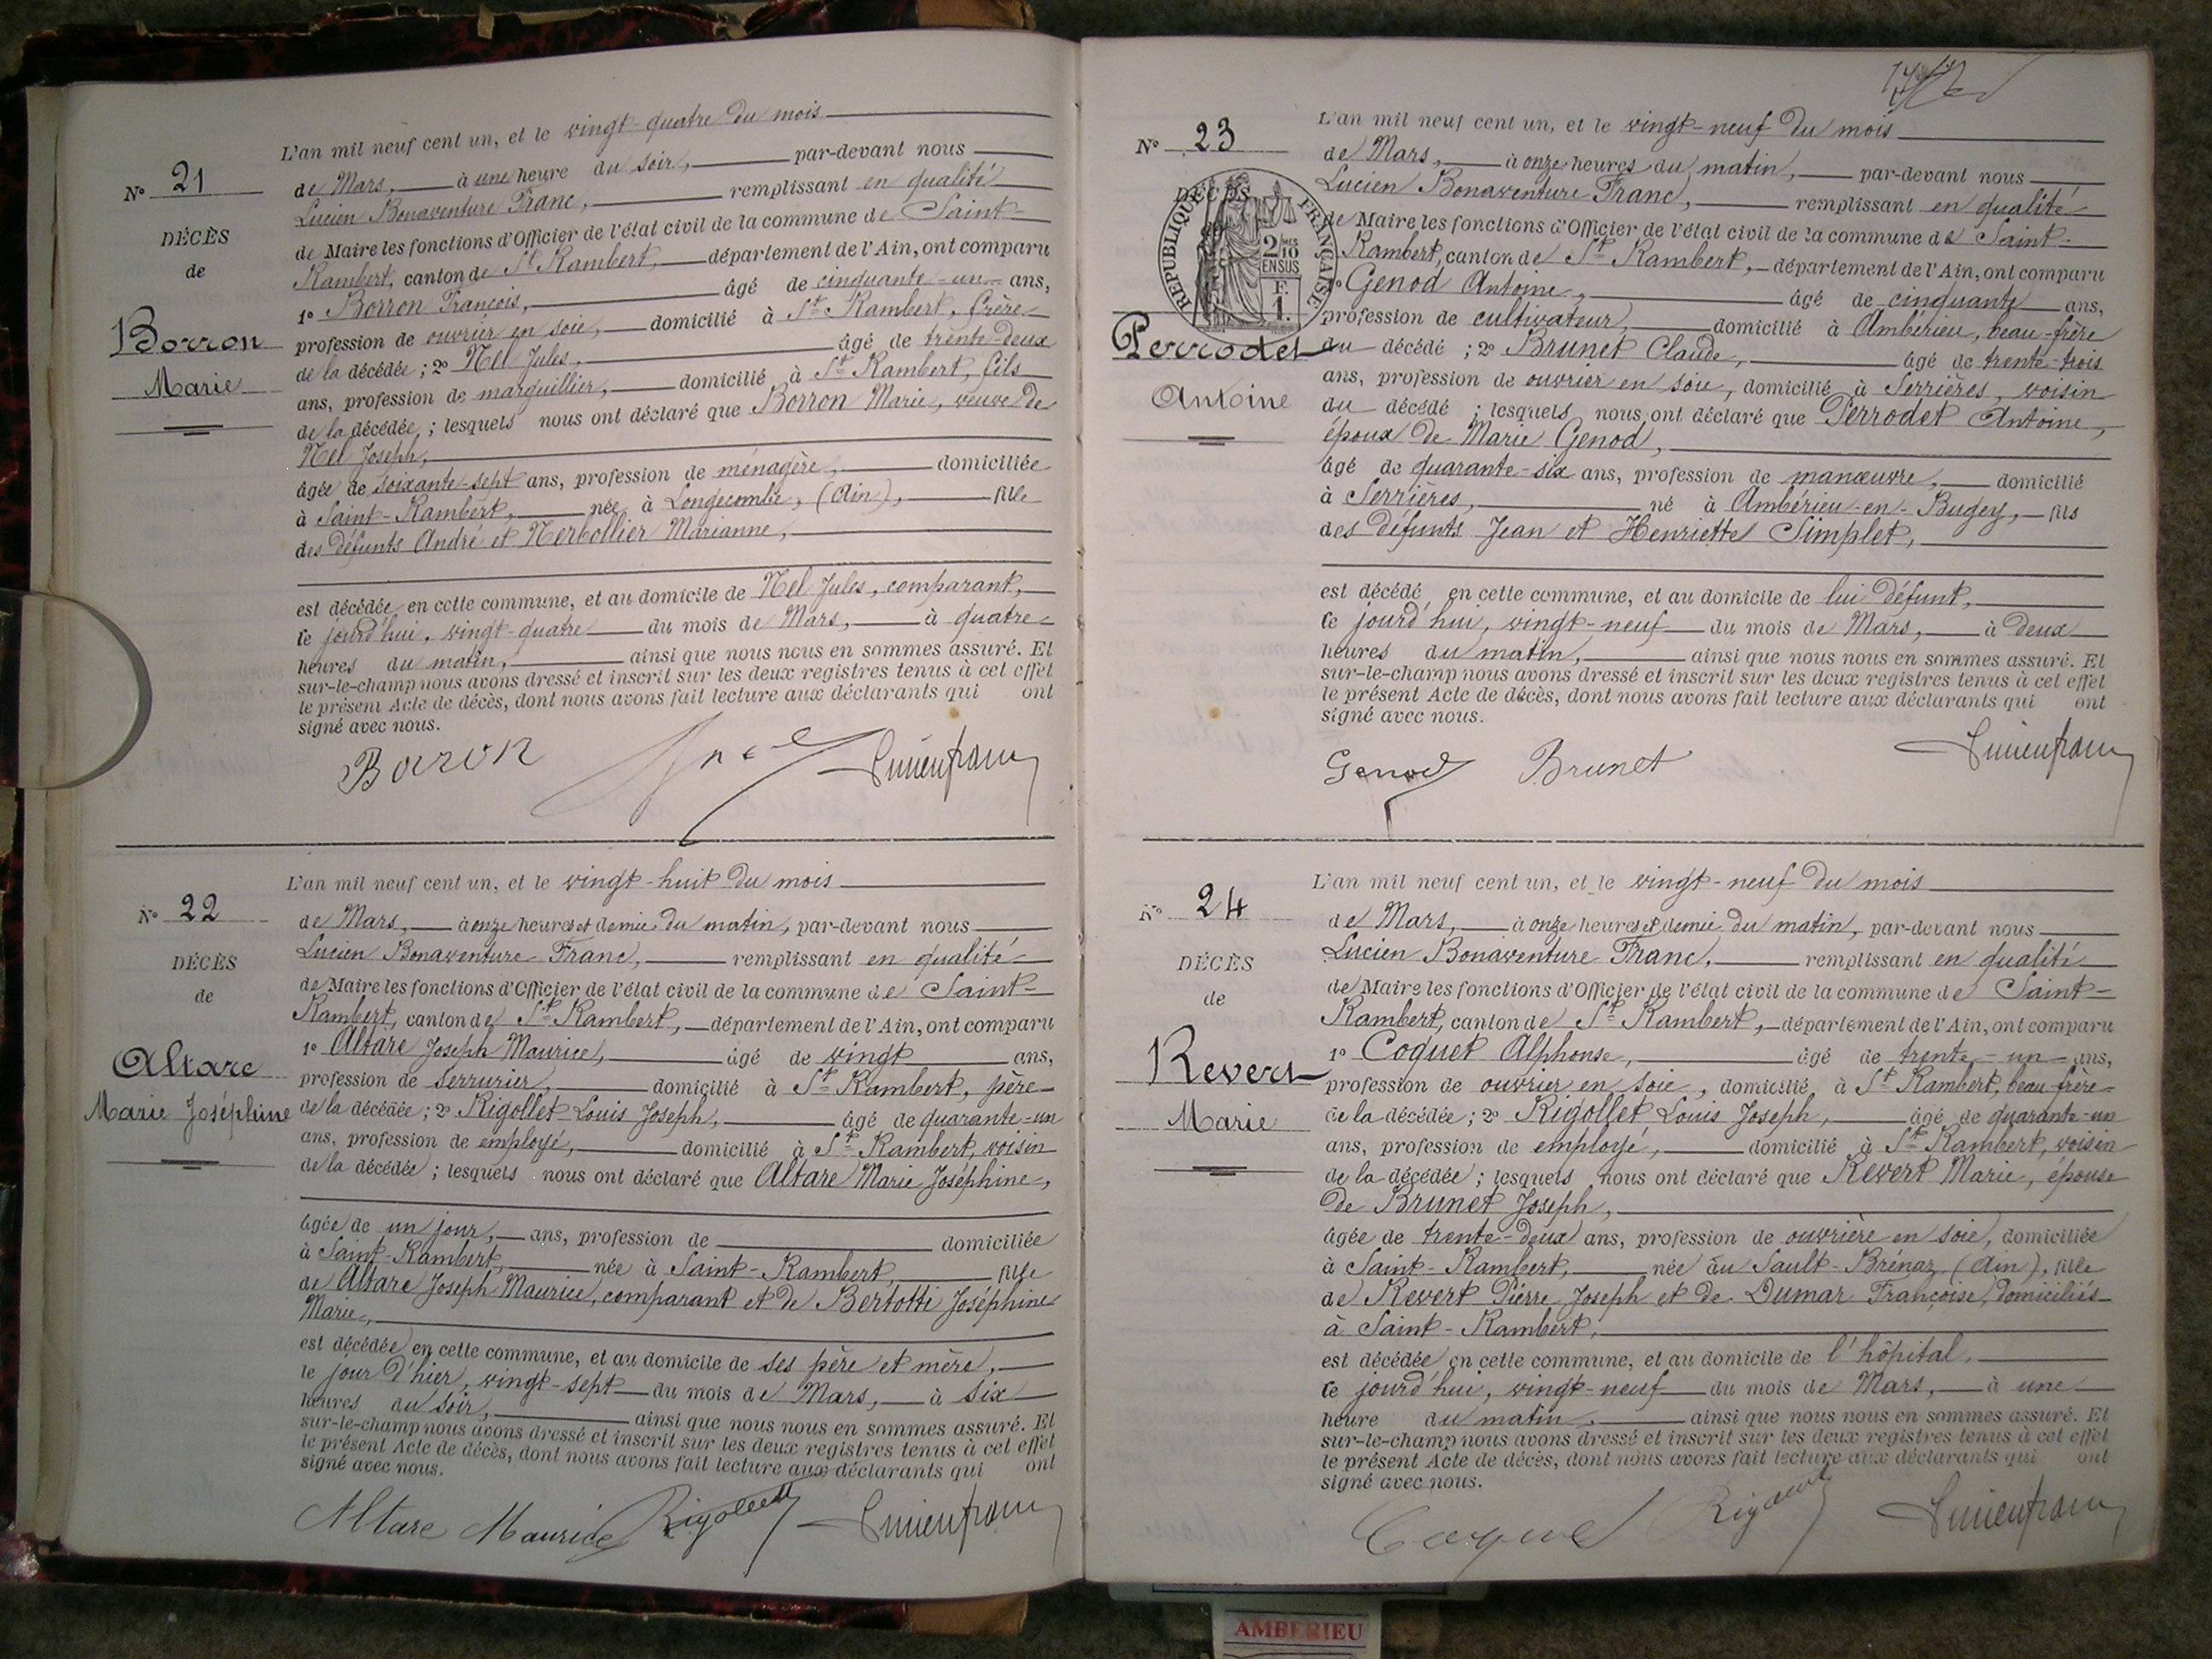 N° 21
DÉCÈS
de
Borron
Marie
L'an mil neuf cent un, et le vingt-quatre du mois
de Mars, à une heure du soir, par-devant nous
Lucien Bonaventure Franc, remplissant en qualité
de Maire les fonctions d'Officier de l'état civil de la commune de Saint-
Rambert, canton de St Rambert, département de l'Ain, ont comparu
1° Borron François, âgé de cinquante-un ans,
profession de ouvrier en soie, domicilié à St Rambert, frère
de la décédée; 2° Nel Jules, âgé de trente-deux
ans, profession de marguillier, domicilié à St Rambert, fils
de la décédée; lesquels nous ont déclaré que Borron Marie, veuve de
Nel Joseph,
âgée de soixante-sept ans, profession de ménagère, domiciliée
à Saint-Rambert, née à Longecombe, (Ain), fille
des défunts André et Nerbollier Marianne,
est décédée en cette commune, et au domicile de Nel Jules, comparant,
ce jourd'hui, vingt-quatre du mois de Mars, à quatre
heures du matin, ainsi que nous nous en sommes assuré. Et
sur-le-champ nous avons dressé et inscrit sur les deux registres tenus à cet effet
le présent Acte de décès, dont nous avons fait lecture aux déclarants qui ont
signé avec nous.
Borron Lucien franc
N° 22
DÉCÈS
de
Altare
Marie Joséphine
L'an mil neuf cent un, et le vingt-huit du mois
de Mars, à onze heures et demie du matin, par-devant nous
Lucien Bonaventure Franc, remplissant en qualité
de Maire les fonctions d'Officier de l'état civil de la commune de Saint-
Rambert, canton de St Rambert, département de l'Ain, ont comparu
1° Altare Joseph Maurice, âgé de vingt ans,
profession de serrurier, domicilié à St Rambert, père
de la décédée; 2° Rigollet Louis Joseph, âgé de quarante-un
ans, profession de employé, domicilié à St Rambert, voisin
de la décédée; lesquels nous ont déclaré que Altare Marie Joséphine,
âgée de un jour, ans, profession de domiciliée
à Saint-Rambert, née à Saint-Rambert, fille
de Altare Joseph Maurice, comparant et de Bertotti Joséphine
Marie,
est décédée en cette commune, et au domicile de ses père et mère,
le jour d'hier, vingt-sept du mois de Mars, à six
heures du soir, ainsi que nous nous en sommes assuré. Et
sur-le-champ nous avons dressé et inscrit sur les deux registres tenus à cet effet
le présent Acte de décès, dont nous avons fait lecture aux déclarants qui ont
signé avec nous.
Altare Maurice Rigollet Lucien franc
N° 23
DÉCÈS
RÉPUBLIQUE FRANÇAISE
2/10 mes
EN SUS
F.
1.
Perrodet
Antoine
L'an mil neuf cent un, et le vingt-neuf du mois
de Mars, à onze heures du matin, par-devant nous
Lucien Bonaventure Franc, remplissant en qualité
de Maire les fonctions d'Officier de l'état civil de la commune de Saint-
Rambert, canton de St Rambert, département de l'Ain, ont comparu
1° Genod Antoine, âgé de cinquante ans,
profession de cultivateur, domicilié à Ambérieu, beau-frère
du décédé; 2° Brunet Claude, âgé de trente-trois
ans, profession de ouvrier en soie, domicilié à Serrières, voisin
du décédé; lesquels nous ont déclaré que Perrodet Antoine,
époux de Marie Genod,
âgé de quarante-six ans, profession de manœuvre, domicilié
à Serrières, né à Ambérieu-en-Bugey, fils
des défunts Jean et Henriette Simplet,
est décédé en cette commune, et au domicile de lui défunt,
ce jourd'hui, vingt-neuf du mois de Mars, à deux
heures du matin, ainsi que nous nous en sommes assuré. Et
sur-le-champ nous avons dressé et inscrit sur les deux registres tenus à cet effet
le présent Acte de décès, dont nous avons fait lecture aux déclarants qui ont
signé avec nous.
Genod Brunet Lucien franc
N° 24
DÉCÈS
de
Revert
Marie
L'an mil neuf cent un, et le vingt-neuf du mois
de Mars, à onze heures et demie du matin, par-devant nous
Lucien Bonaventure Franc, remplissant en qualité
de Maire les fonctions d'Officier de l'état civil de la commune de Saint-
Rambert, canton de St Rambert, département de l'Ain, ont comparu
1° Coquet Alphonse, âgé de trente-un ans,
profession de ouvrier en soie, domicilié à St Rambert, beau-frère
de la décédée; 2° Rigollet Louis Joseph, âgé de quarante-un
ans, profession de employé, domicilié à St Rambert, voisin
de la décédée; lesquels nous ont déclaré que Revert Marie, épouse
de Brunet Joseph,
âgée de trente-deux ans, profession de ouvrière en soie, domiciliée
à Saint-Rambert, née au Sault-Brénaz (Ain), fille
de Revert Pierre Joseph et de Dumar Françoise, domiciliés
à Saint-Rambert,
est décédée en cette commune, et au domicile de l'hôpital,
ce jourd'hui, vingt-neuf du mois de Mars, à une
heure du matin, ainsi que nous nous en sommes assuré. Et
sur-le-champ nous avons dressé et inscrit sur les deux registres tenus à cet effet
le présent Acte de décès, dont nous avons fait lecture aux déclarants qui ont
signé avec nous.
Coquet Lucien franc
AMBERIEU